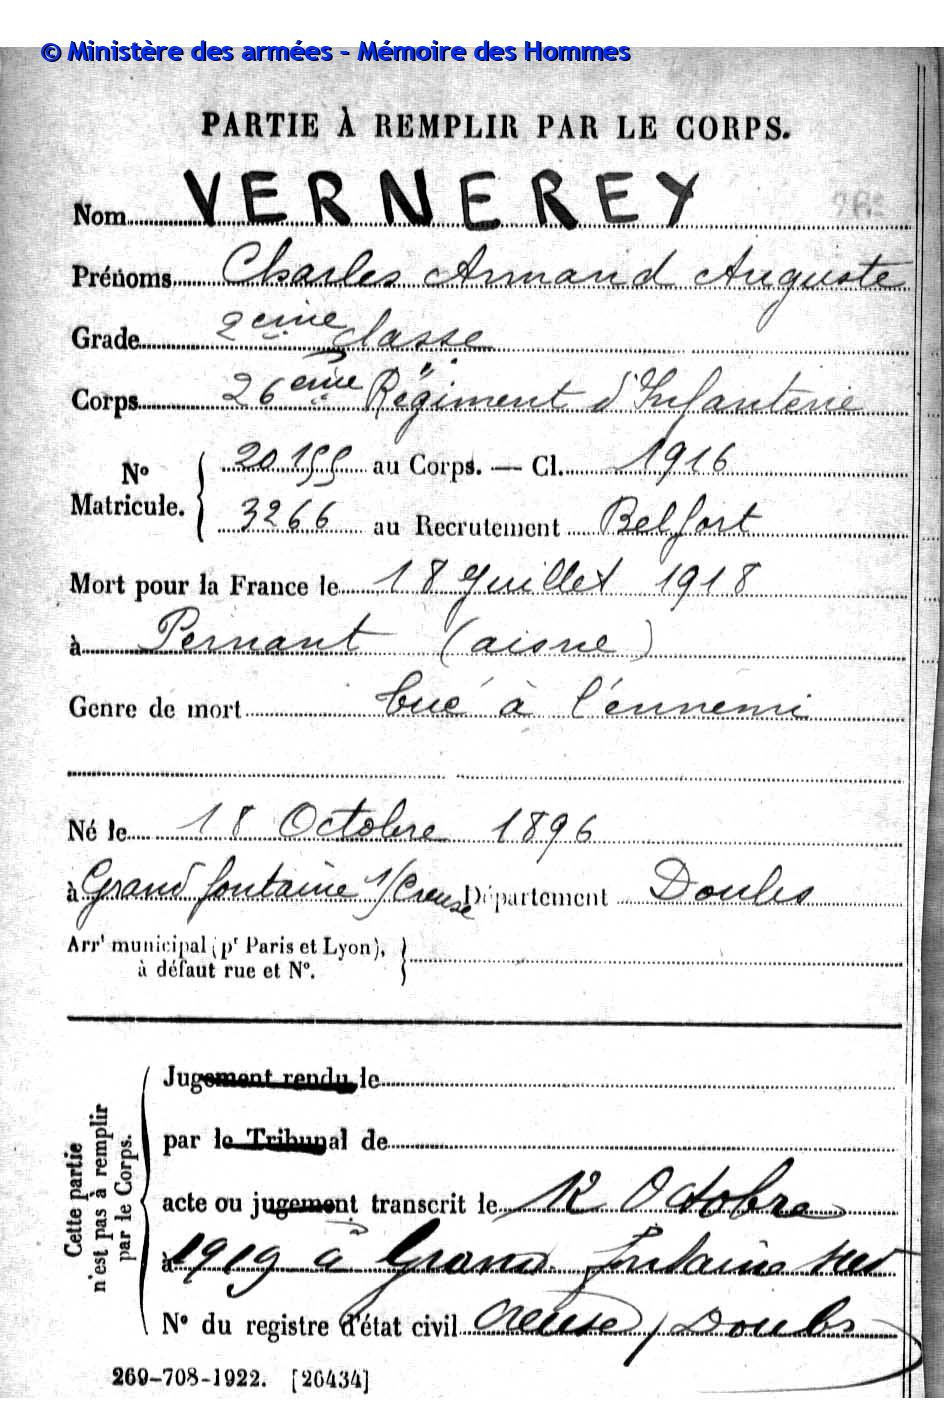 © Ministère des armées - Mémoire des Hommes
PARTIE À REMPLIR PAR LE CORPS.
Nom VERNEREY
Prénoms Charles Armand Auguste
Grade 2eme classe
Corps 26eme Régiment d'Infanterie
No Matricule. { 20155 au Corps. — Cl. 1916
3266 au Recrutement Belfort
Mort pour la France le 18 Juillet 1918
à Pernant (aisne)
Genre de mort tué à l'ennemi
Né le 18 Octobre 1896
à Grand fontaine s/Creuse Département Doubs
Arrt municipal (pr Paris et Lyon),
à défaut rue et No.
Cette partie
n'est pas à remplir
par le Corps.
Jugement rendu le
par le Tribunal de
acte ou jugement transcrit le 12 Octobre
à 1919 à Grand. fontaine sur
No du registre d'état civil Creuse, Doubs
269-708-1922. [26434]